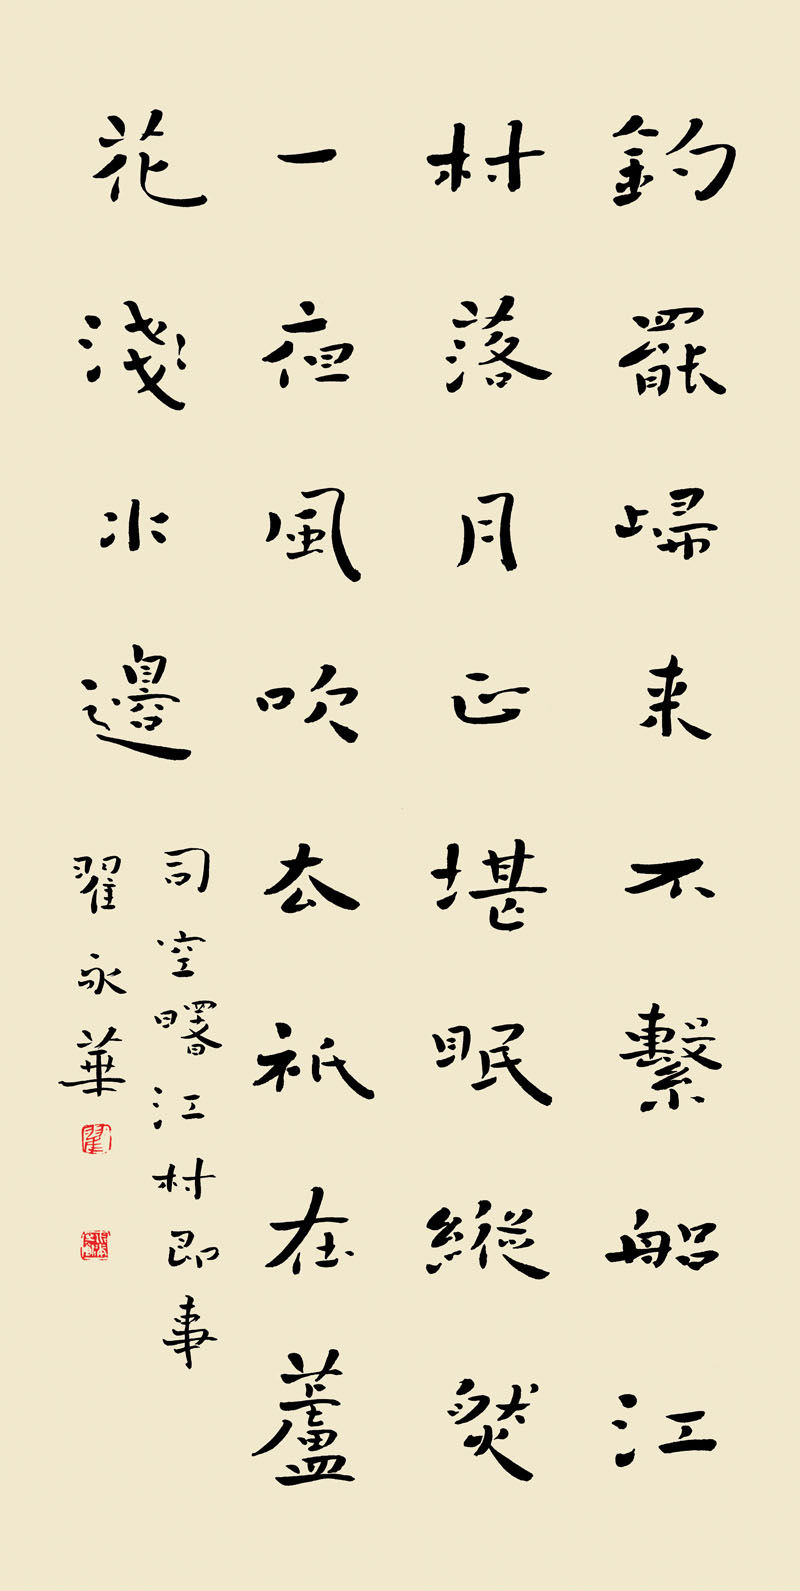 釣罷歸来不繫船江
村落月正堪眠縱然
一夜風吹去祇在蘆
花淺水邊
司空曙江村即事
翟永華